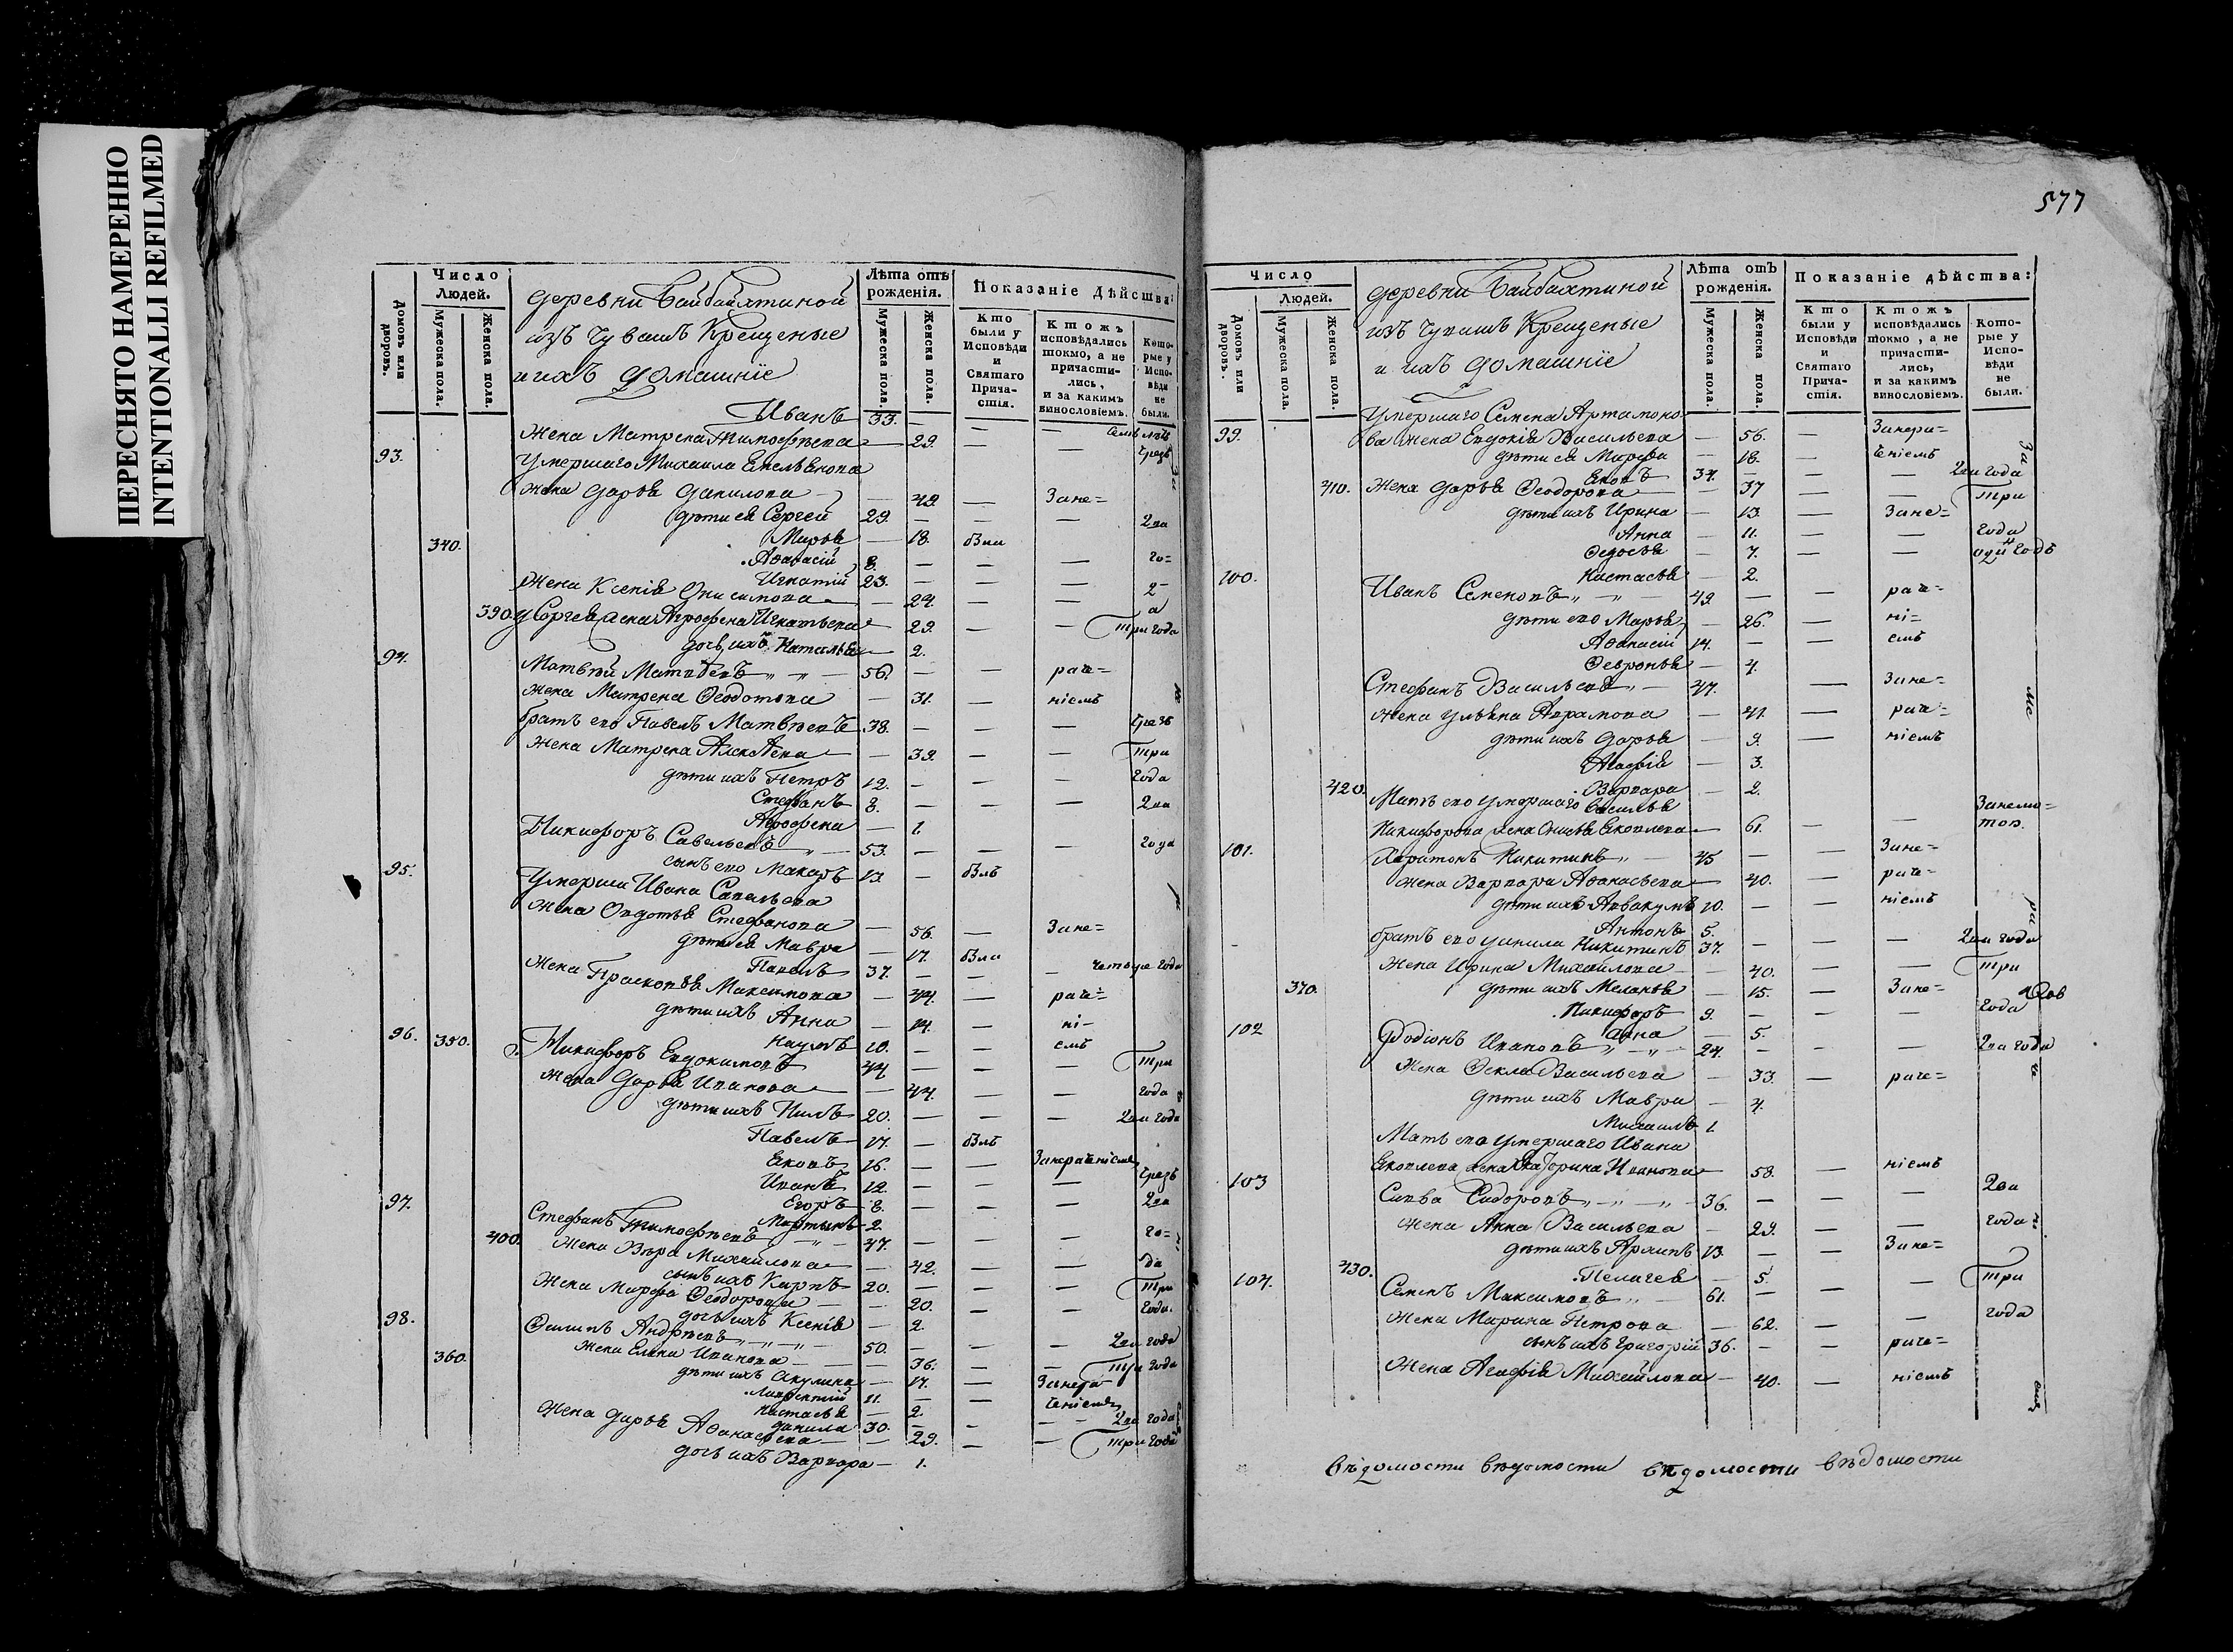 ПЕРЕСНЯТО НАМЕРЕННО
INTENTIONALLI REFILMED
Число
Людей.
Домовъ или дворовъ.
Мужеска пола.
Женска пола.
деревни Байбахтиной
изъ Чувашъ Крещеные
и ихъ домашніе
Лѣта отъ рожденія.
Мужеска пола.
Женска пола.
Показаніе Дѣйства:
Кто были у Исповѣди и Святаго Причастія.
Ктожъ исповѣдались токмо, а не причастились, и за какимъ винословіемъ.
Которые у Исповѣди не были.
Иванъ 33. — — —
Жена Матрена Тимофѣева — 29. — — семь лѣтъ
93. Умершаго Михаила Емельянова чрезъ
жена Дарья Данилова — 49. — Зане=
дѣти ея Сергей 29. — — — два
Марѳа — 18. была
340. Аѳанасій 8. — — — го=
Игнатій 23. — — —
жена Ксенія Онисимова — 24. — —
390. у Сергея жена Агрофена Игнатьева — 29. — — три года
дочь ихъ Наталья — 2.
94. Матвѣй Матвѣевъ 56. — — раче=
жена Матрена Ѳедотова — 31. — ніемъ
братъ его Павелъ Матвѣевъ 38. — — — чрезъ
жена Матрена Алексѣева — 39. — — три
дѣти ихъ Петръ 12. — — — года
Стефанъ 8. — — — два
Агрофена — 1.
Никифоръ Савельевъ 53. — — — года
сынъ его Макаръ 13. — былъ
95. Умерша Ивана Савельева
жена Овдотья Стефанова — 56. — Зане=
дѣти ея Мавра — 17. была
Павелъ 37. — — — четыре года
жена Прасковья Максимова — 44. — раче=
дѣти ихъ Анна — 14. — ні=
350. Наумъ 10. — — емъ
96. Никифоръ Евдокимовъ 44 — — — три
жена Дарья Иванова — 44. — — года
дѣти ихъ Нилъ 20. — — — два года
Павелъ 17. — былъ
Яковъ 16. — — Занерачніемъ
Иванъ 12. — — — чрезъ
Егоръ 8. — — — два
Мартынъ 2.
97. Стефанъ Тимофѣевъ 47. — — — го=
400. жена Вѣра Михайлова — 42. — — да
сынъ ихъ Карпъ 20. — — — три
жена Марѳа Ѳеодорова — 20. — — года.
дочь ихъ Ксенія — 2.
98. Филипъ Андрѣевъ 50. — — — два года
жена Елена Иванова — 36. — — три года
360. дѣти ихъ Акулина — 17. — Занера=
Лаврентій 11. — — ченіемъ
Настасья — 2.
Данила 30. — — — два года
жена Дарья Аѳанасьева — 29. — — три года
дочь ихъ Варвара — 1.
577
Число
Людей.
Домовъ или дворовъ.
Мужеска пола.
Женска пола.
деревни Байбахтиной
изъ Чувашъ Крещеные
и ихъ домашніе
Лѣта отъ рожденія.
Мужеска пола.
Женска пола.
Показаніе дѣйства:
Кто были у Исповѣди и Святаго Причастія.
Ктожъ исповѣдались токмо, а не причастились, и за какимъ винословіемъ.
Которые у Исповѣди не были.
Умершаго Семена Артамоно-
99. ва жена Евдокія Васильева — 56. — Занера=
дѣти ея Марѳа — 18. — ченіемъ
Яковъ 34. — — — два года
410. жена Дарья Ѳеодорова — 37 — — три
дѣти ихъ Ирина — 13. — Зане=
Анна — 11. — — года
Ѳедосья — 7. — — одинъ годъ
Настасья — 2.
100. Иванъ Семеновъ 49. — — раче=
дѣти его Марѳа — 26. — ні=
Аѳанасій 14. — — емъ
Февронья — 4.
Стефанъ Васильевъ 47. — Зане=
жена Ульяна Аврамова — 41. — раче=
дѣти ихъ Дарья — 9. — ніемъ
Агафія — 3.
420. Варвара — 2.
Мать его умершаго Василья Занемо=
Никифорова жена Онисья Яковлева — 61. — — тою.
101. Харитонъ Никитинъ 45 — — Зане=
жена Варвара Аѳанасьева — 40. — раче=
дѣти ихъ Аввакумъ 10. — — ніемъ
Антонъ 5.
братъ его Данила Никитинъ 37. — — — два года
жена Ирина Михайлова — 40. — — три
370. дѣти ихъ Меланья — 15. — Зане=
Никифоръ 9. — — — года
Анна — 5.
102 Родіонъ Ивановъ 24. — — — два года
жена Ѳекла Васильева — 33. — раче=
дѣти ихъ Мавра — 4.
Михаилъ 1.
Мать его умершаго Ивана
Яковлева жена Катерина Иванова — 58. — ніемъ
103 Савва Сидоровъ 36. — — — два
жена Анна Васильева — 29. — — года
дѣти ихъ Архипъ 13. — — Зане=
430. Пелагея — 5. — три
104. Семенъ Максимовъ 61. — —
жена Марина Петрова — 62. — — года
сынъ ихъ Григорій 36. — — раче=
жена Агафія Михайлова — 40. — ніемъ
вѣдомости вѣдомости вѣдомости вѣдомости